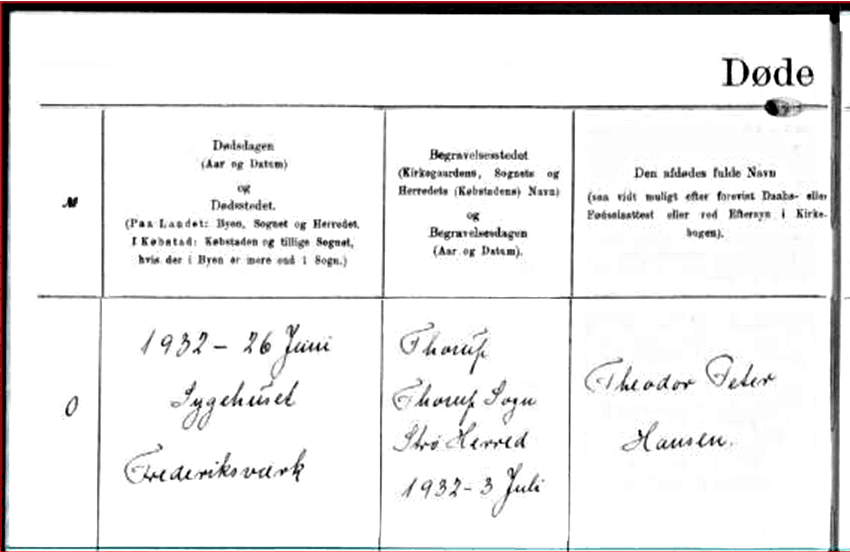 Døde
№
Dødsdagen
(Aar og Datum)
og
Dødsstedet.
(Paa Landet: Byen, Sognet og Herredet.
I Købstad: Købstaden og tillige Sognet,
hvis der i Byen er mere end 1 Sogn.)
Begravelsesstedet
(Kirkegaardens, Sognets og
Herredets (Købstadens) Navn)
og
Begravelsesdagen
(Aar og Datum).
Den afdødes fulde Navn
(saa vidt muligt efter forevist Daabs- eller
Fødselsattest eller ved Eftersyn i Kirke-
bogen).
0
1932 - 26 Juni
Sygehuset
Frederiksværk
Thorup
Thorup Sogn
Strø Herred
1932 - 3 Juli
Theodor Peter
Hansen.